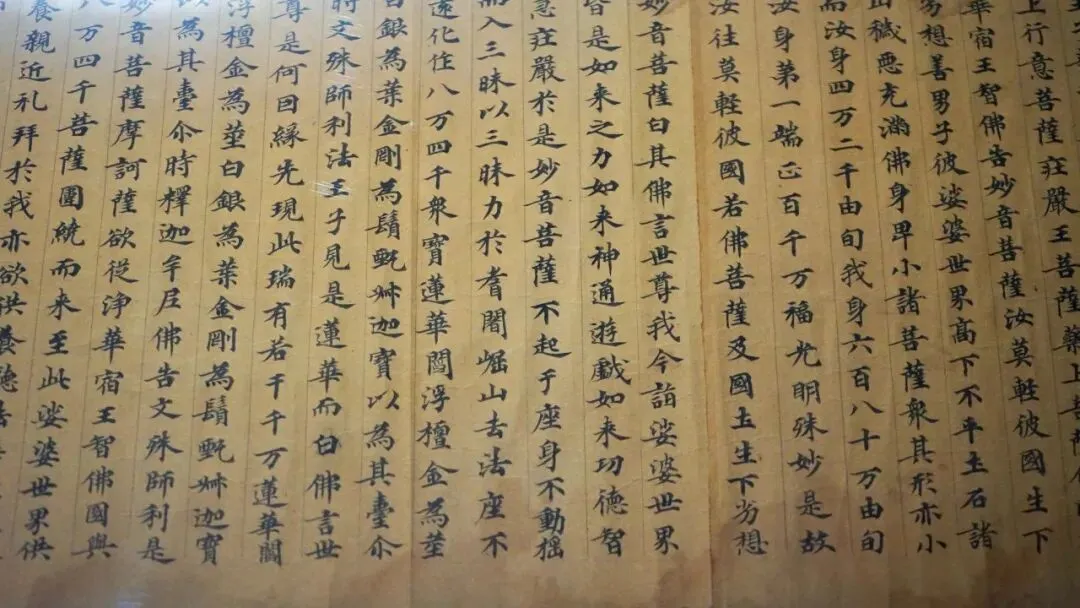 上行意菩薩莊嚴王菩薩藥上菩薩
華宿王智佛告妙音菩薩汝莫輕彼國生下
劣想善男子彼娑婆世界高下不平土石諸
山穢惡充滿佛身卑小諸菩薩衆其形亦小
而汝身四万二千由旬我身六百八十万由旬
汝身第一端正百千万福光明殊妙是故
汝往莫輕彼國若佛菩薩及國土生下劣想
妙音菩薩白其佛言世尊我今詣娑婆世界
皆是如来之力如来神通遊戲如来功德智
慧莊嚴於是妙音菩薩不起于座身不動摇
而入三昧以三昧力於耆闍崛山去法座不
遠化作八万四千衆寶蓮華閻浮檀金為莖
白銀為葉金剛為鬚甄叔迦寶以為其臺尒
時文殊師利法王子見是蓮華而白佛言世
尊是何因緣先現此瑞有若干千万蓮華閻
浮檀金為莖白銀為葉金剛為鬚甄叔迦寶
以為其臺尒時釋迦牟尼佛告文殊師利是
妙音菩薩摩訶薩欲從淨華宿王智佛國與
八万四千菩薩圍繞而来至此娑婆世界供
養親近礼拜於我亦欲供養聽法